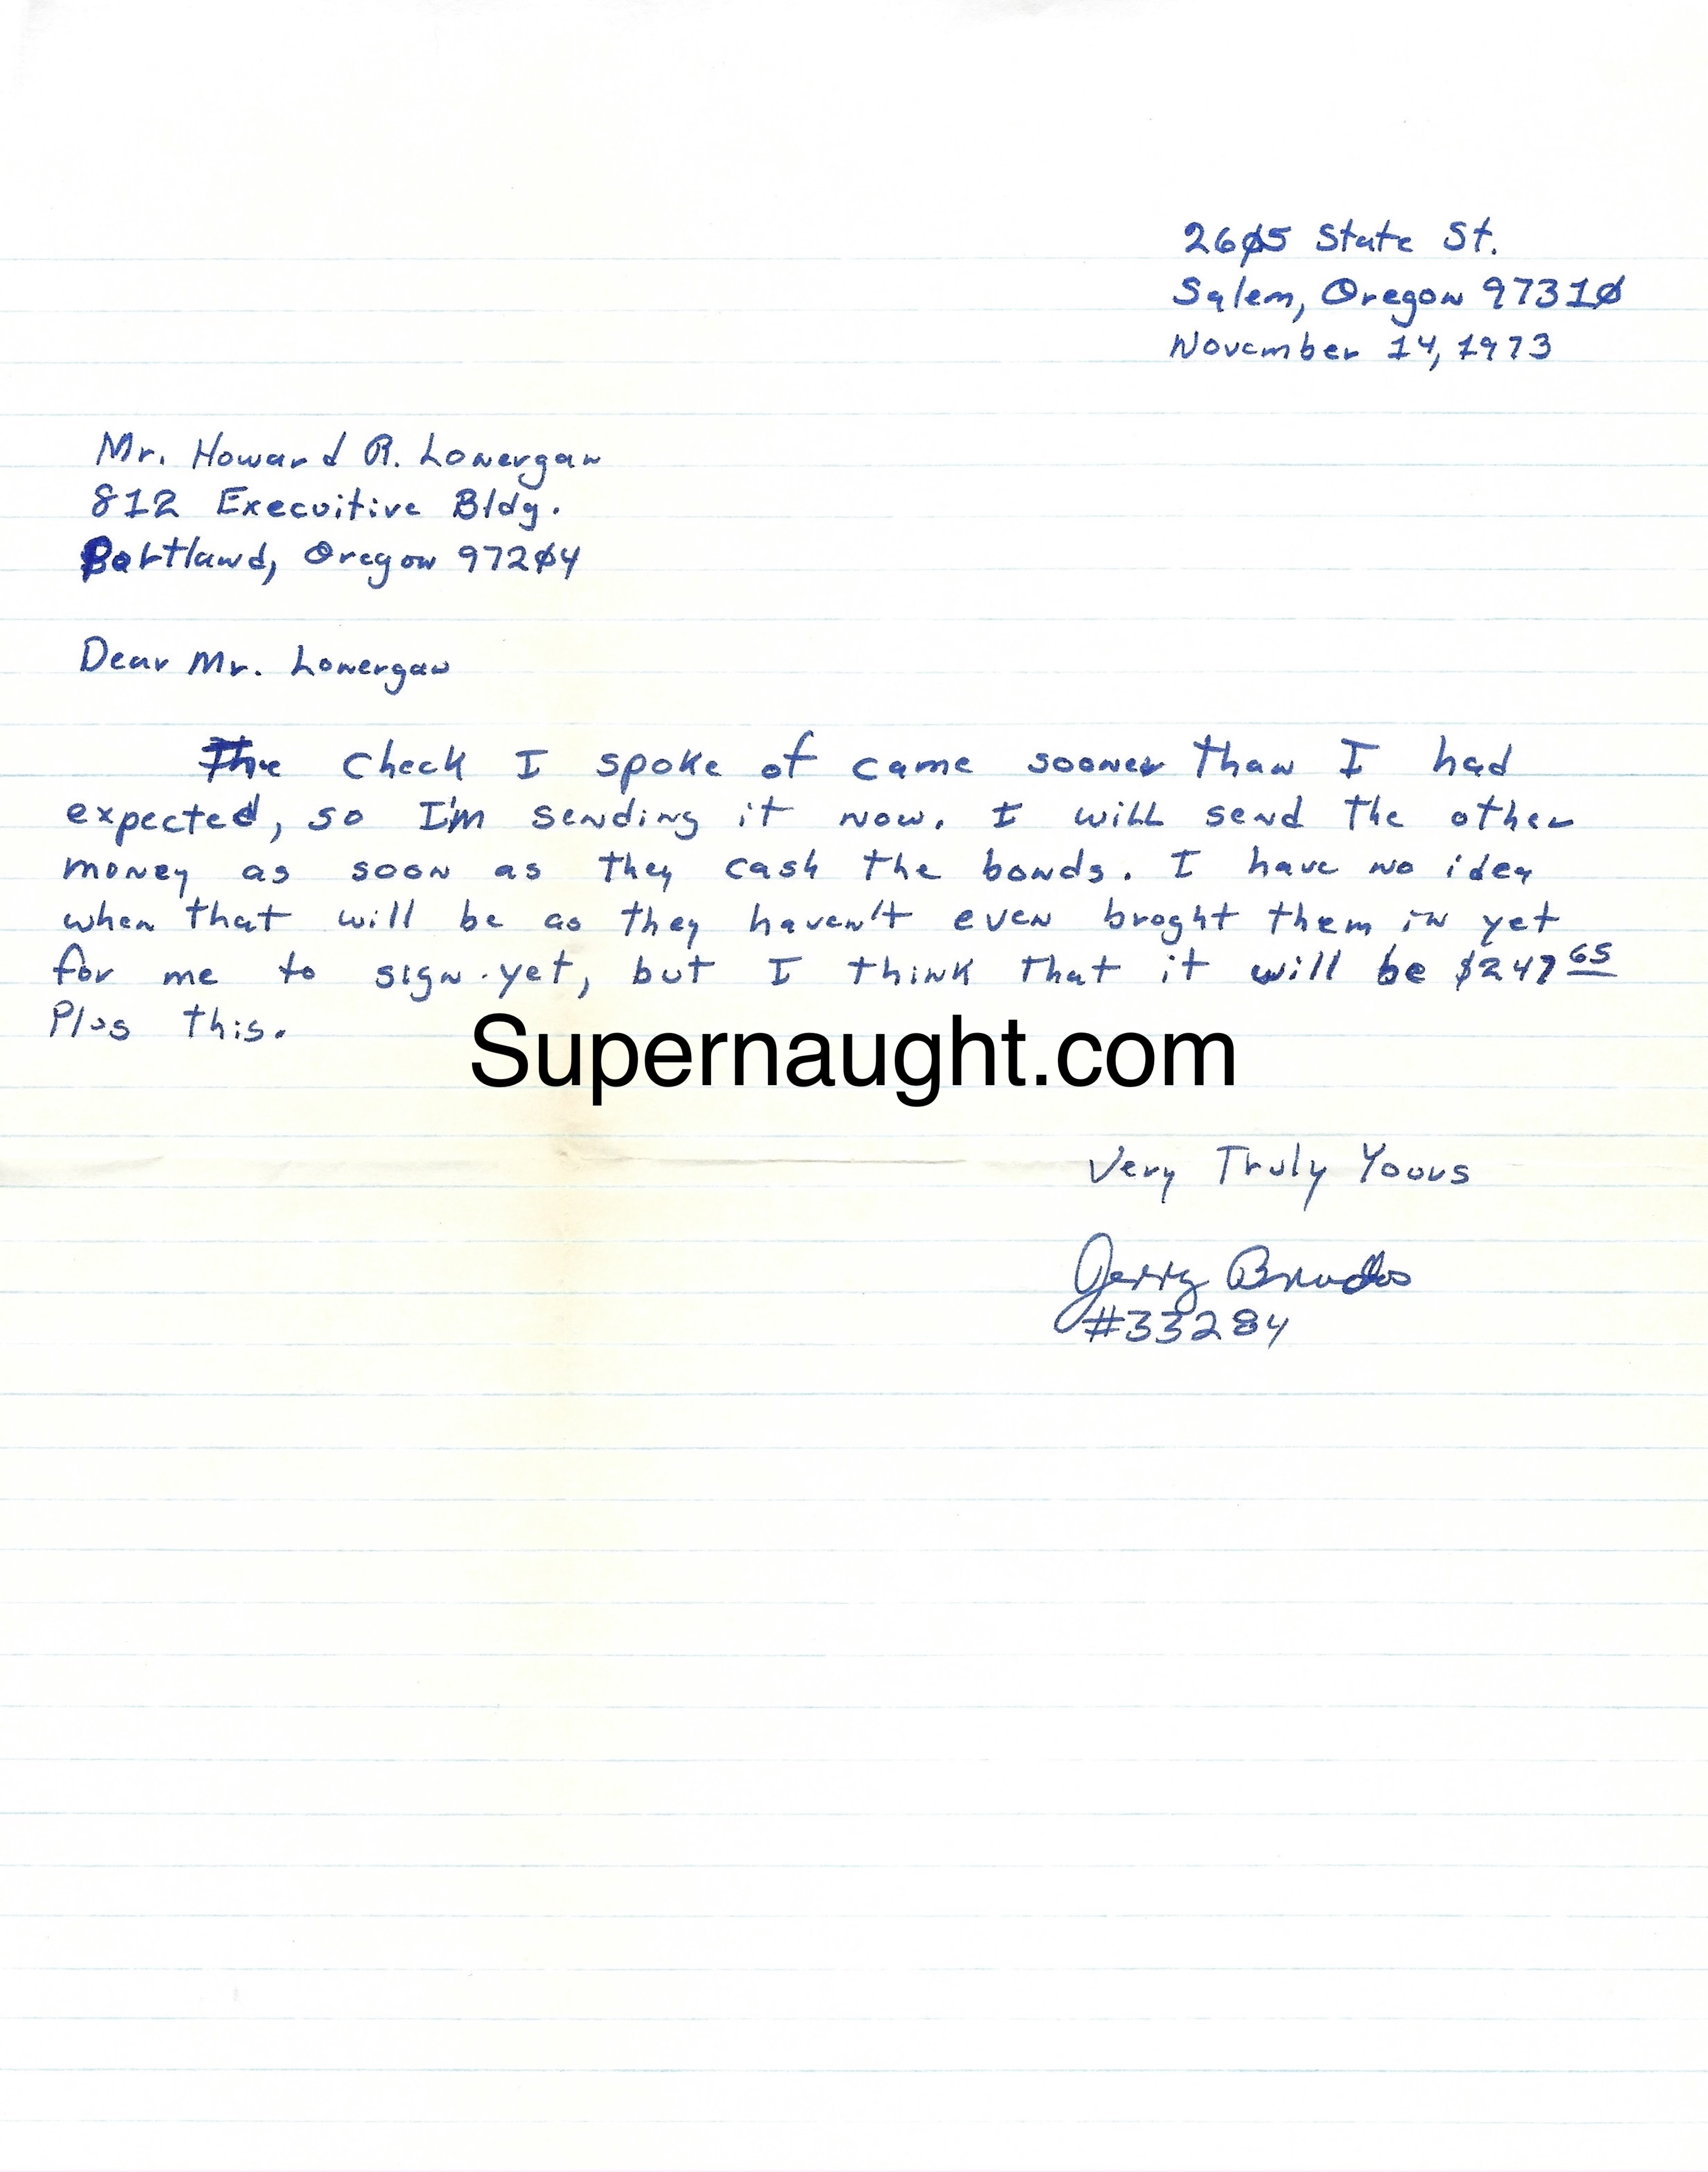 2605 State St.
Salem, Oregon 97310
November 14, 1973
Mr. Howard R. Lonergan
812 Execuitive Bldg.
Portland, Oregon 97204
Dear Mr. Lonergan
The check I spoke of came sooner than I had
expected, so I'm sending it now. I will send the other
money as soon as they cash the bonds. I have no idea
when that will be as they haven't even broght them in yet
for me to sign yet, but I think that it will be $247 65
Plus this.
Supernaught.com
Very Truly Yours
Jerry Brudos
#33284